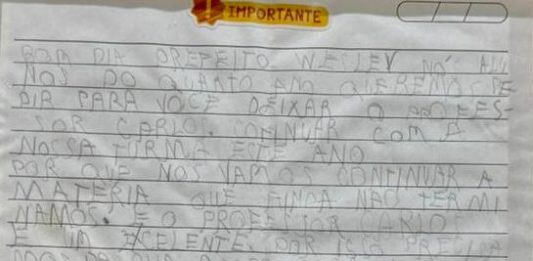 IMPORTANTE
BOM DIA PREFEITO WESLEY NÓS ALU
NOS DO QUANTO ANO QUEREMOS PE
DIR PARA VOCE DEIXAR O PROFES-
SOR CARLOS. CONTINUAR COM A
NOSSA TURMA ESTE ANO
POR QUE NOS VAMOS CONTINUAR A
MATERIA QUE NÃO TERMI
NAMOS. E O PROFESSOR
E UM EXCELENTE. POR ISSO PRECISA